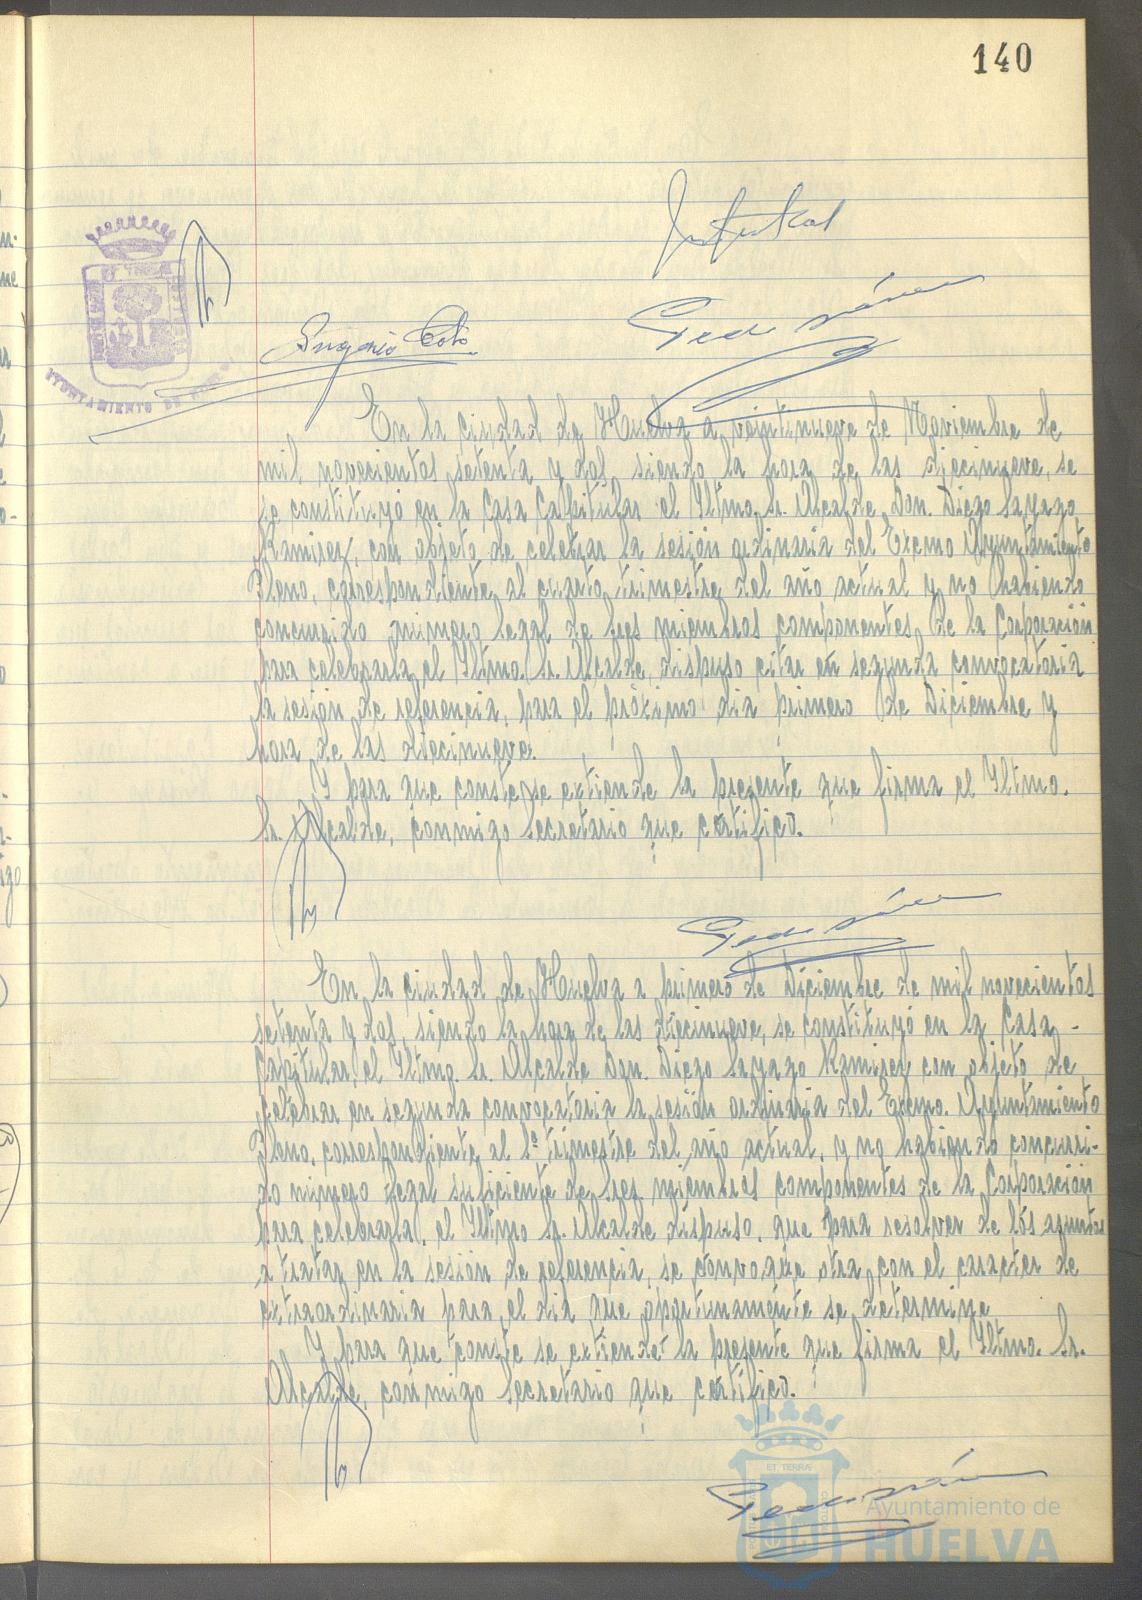 140
AYUNTAMIENTO DE
Eugenio
En la ciudad de Huelva a veintinueve de Noviembre de
mil novecientos setenta y dos, siendo la hora de las diecinueve, se
se constituyó en la Casa Capitular el Iltmo. Sr. Alcalde Don. Diego Sayago
Ramirez, con objeto de celebrar la sesión ordinaria del Excmo Ayuntamiento
Pleno, correspondiente al cuarto trimestre del año actual y no habiendo
concurrido número legal de Sres miembros componentes de la Corporación
para celebrarla el Iltmo. Sr. Alcalde, dispuso citar en segunda convocatoria
la sesión de referencia, para el próximo dia primero de Diciembre y
hora de las diecinueve.
Y para que conste se extiende la presente que firma el Iltmo.
Sr. Alcalde, conmigo Secretario que certifico.
En la ciudad de Huelva a primero de Diciembre de mil novecientos
setenta y dos, siendo la hora de las diecinueve, se constituyó en la Casa -
Capitular, el Iltmo. Sr. Alcalde Don. Diego Sayago Ramirez con objeto de
celebrar en segunda convocatoria la sesión ordinaria del Excmo. Ayuntamiento
Pleno, correspondiente al trimestre del año actual, y no habiendo concurri-
do número legal suficiente de Sres miembros componentes de la Corporación
para celebrarla, el Iltmo Sr. Alcalde dispuso, que para resolver de los asuntos
a tratar en la sesión de referencia, se convoque otra con el caracter de
extraordinaria para el dia que oportunamente se determine
Y para que conste se extiende la presente que firma el Iltmo. Sr.
Alcalde, conmigo Secretario que certifico.
Ayuntamiento de
HUELVA